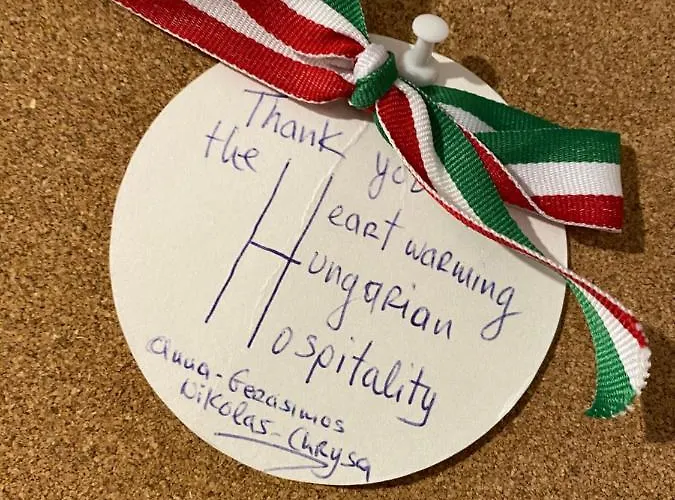 Thank you
the
Heartwarming
Hungarian
Hospitality
Anna-Gerasimos
Nikolas-Chrysa